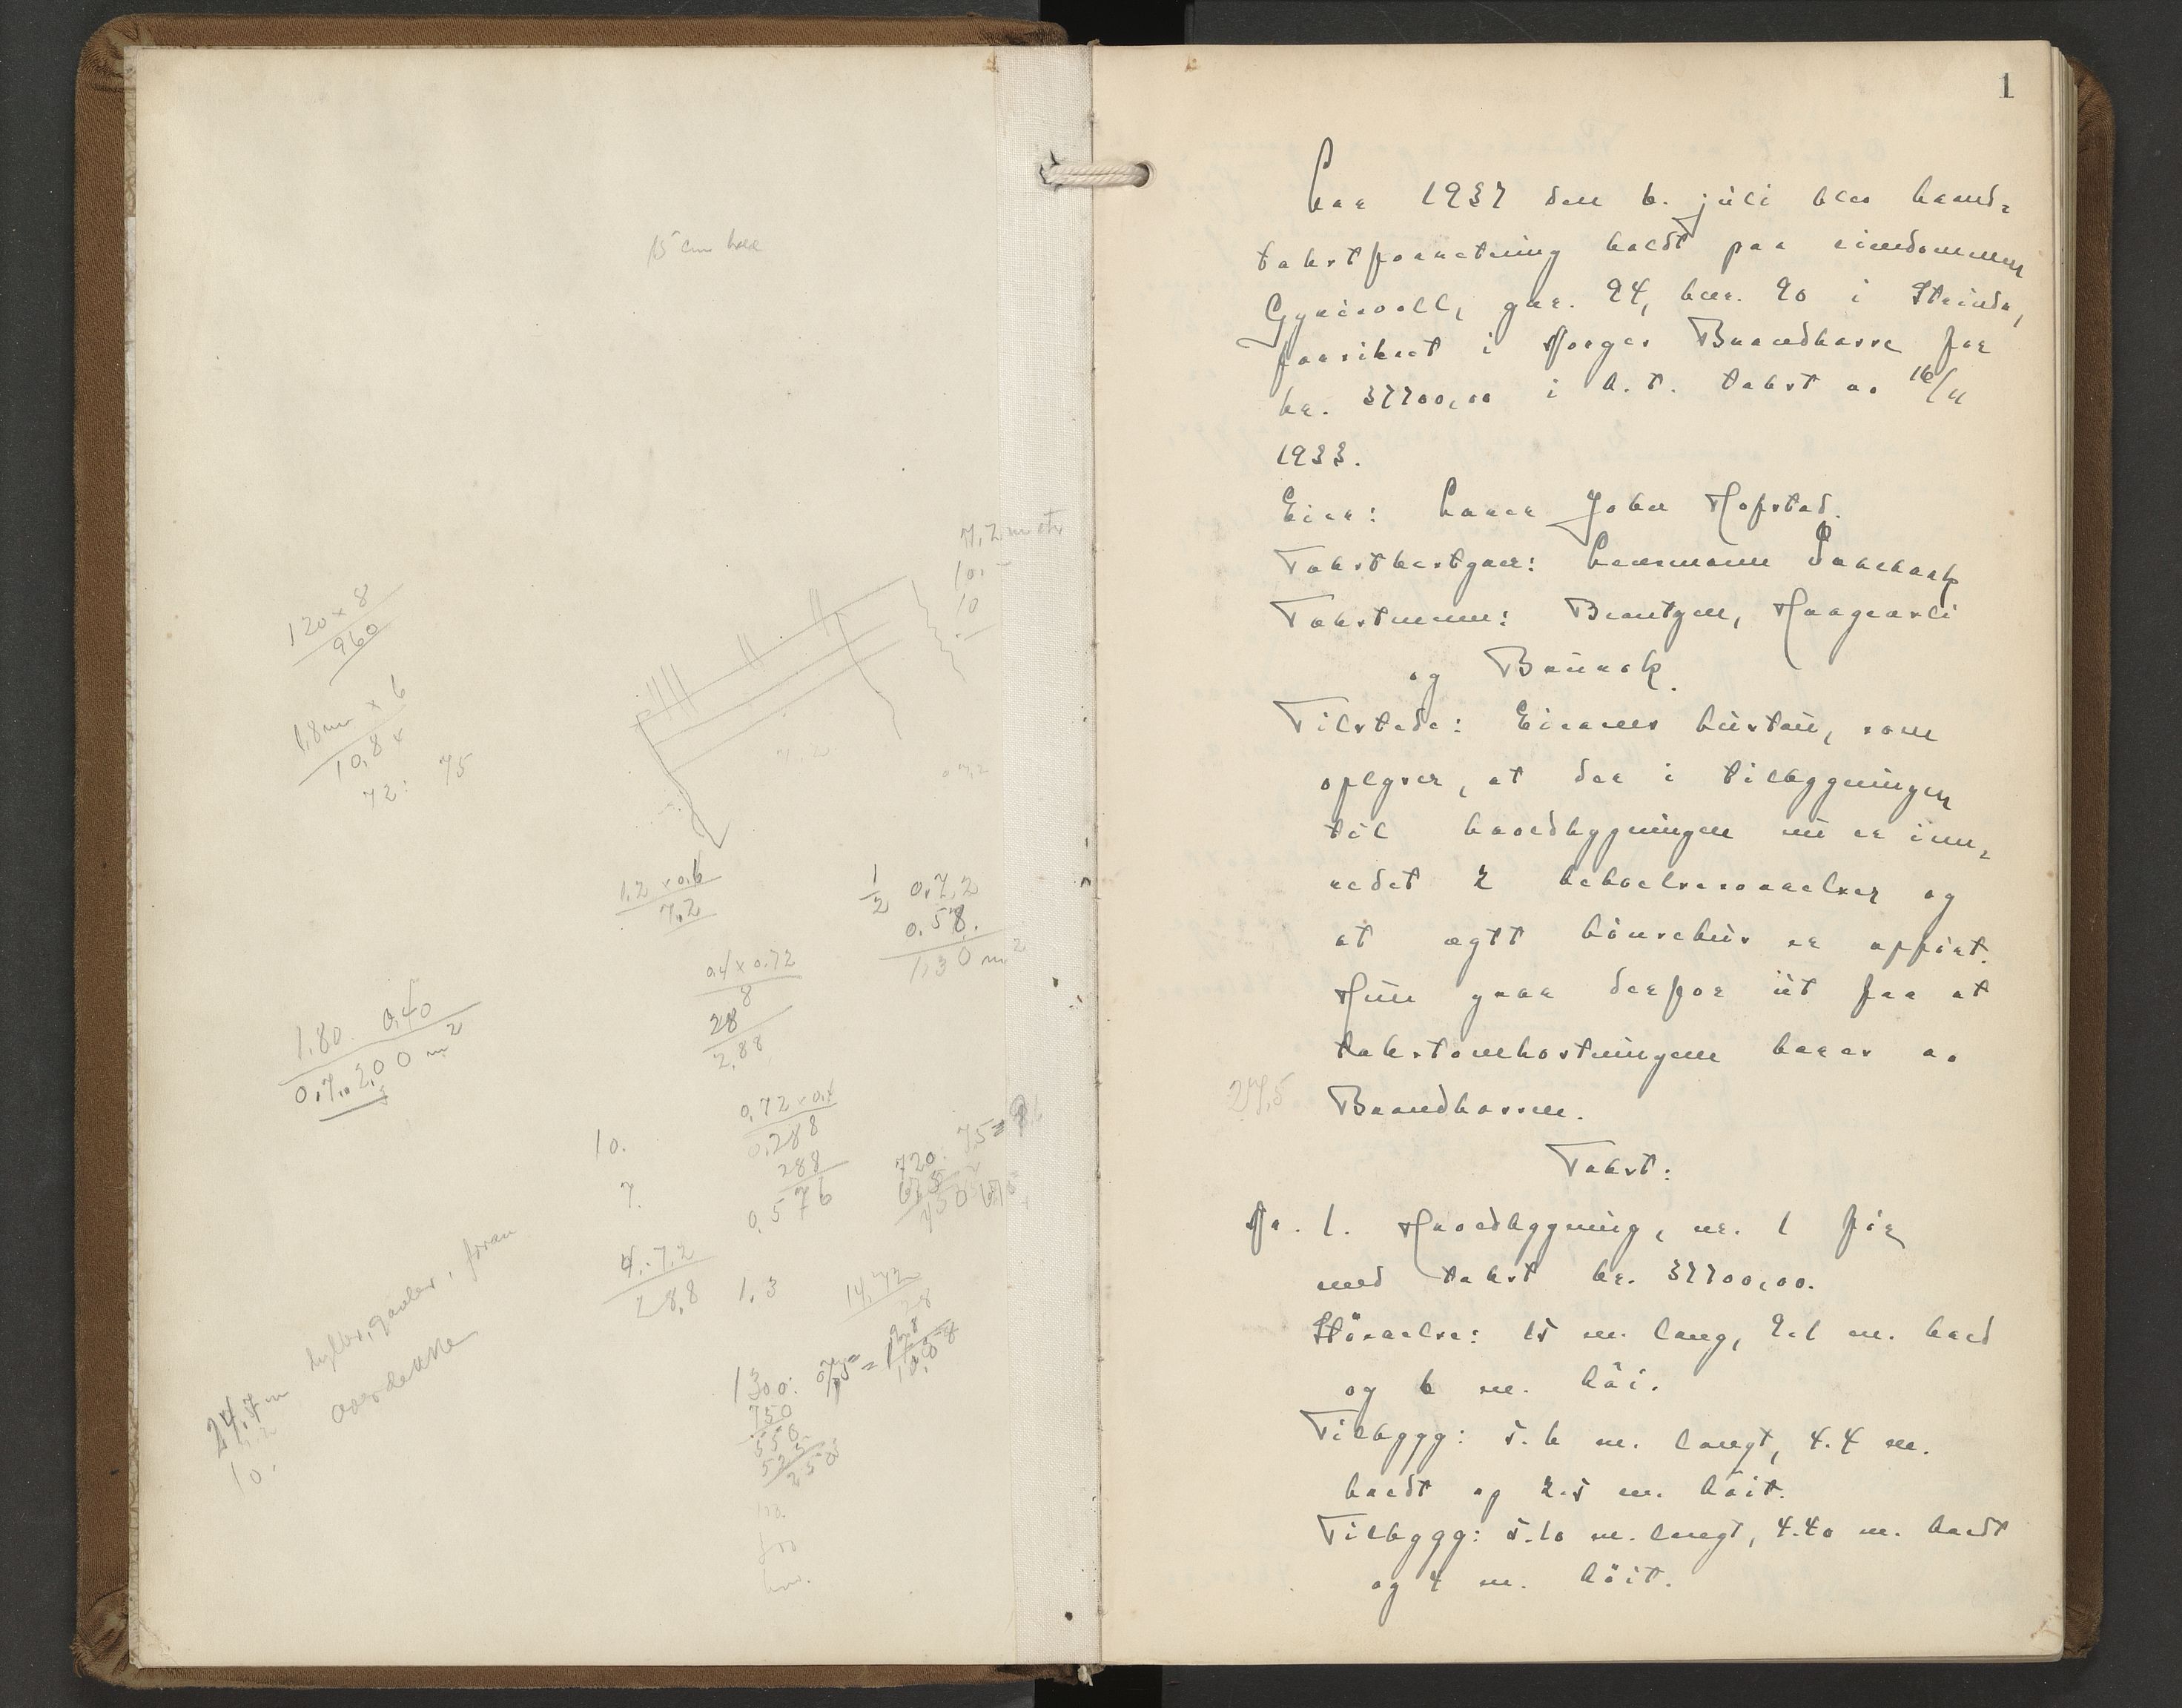 15 cm
7,2 metr
10.-
10
120 x 8
960
1,8 m x 6
10,8
72: 75
1,2 x 0,6
7,2
1/2 0,7,2
0.58.
1,30 m2
0,4 x 0.72
8
288
2,88
1.80 0,40
0,7..2,00 m2
0,72 x 0,4
0,288
288
0,576
10.
7.
720: 75=
4.-7,2
28,8
1.3
14,42
28
1300:
750
550
525
250
foran
24,7 m
10.
1
Aar 1937 den 6. juli blev brand-
takstforretning holdt paa eiendommen
Gyrivoll, gnr. 94, bnr. 90 i Strinda,
forsikret i Norges Brandkasse for
kr. 37700,00 i h. t. takst av 16/11
1933.
Eier: Lærer John Hofstad.
Takstbestyrer: Lensmann
Takstmenn: Brantzen, Haagensli
og Baurak.
Tilstede: Eierens hustru, som
oplyser, at der i tilbygningen
til hovedbygningen nu er inn-
redet 2 beboelsesværelser og
at nytt hönsehus er opfört.
Hun gaar derfor ut fra at
takstomkostningene bæres av
27,5
Brandkassen.
Takst:
Nr. 1. Hovedbygning, nr. 1 för
med takst kr. 37700,00.
Störrelse: 15 m. lang, 9.1 m. bred
og 6 m. höi.
Tilbygg: 5.6 m. langt, 4.4 m.
bredt og 2.5 m. höit.
Tilbygg: 5.10 m. langt, 4.40 m. bredt
og 4 m. höit.